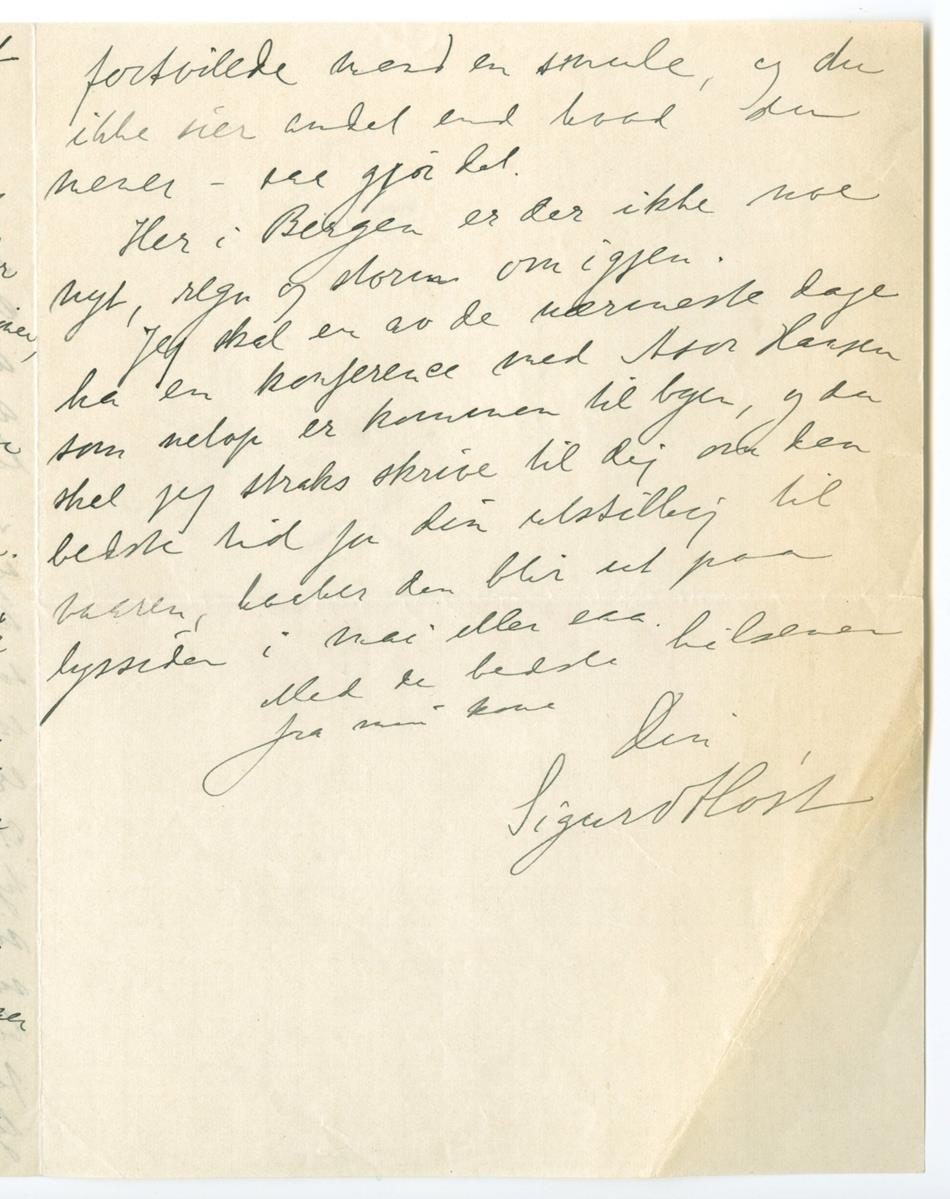 fortvilede mend en smule, og du
ikke sier andet end hvad du
mener – saa gjör det.
Her i Bergen er der ikke noe
nyt, regn og storm om igjen.
Jeg skal en av de nærmeste dage
ha en konference med Asor Hansen
som netop er kommen til byen, og da
skal jeg straks skrive til dig om den
bedste tid for din utstilling til
vaaren, haaber den blir ut paa
lyssiden i mai eller saa.
Med de bedste hilsener
fra min kone
Din
Sigurd Høst